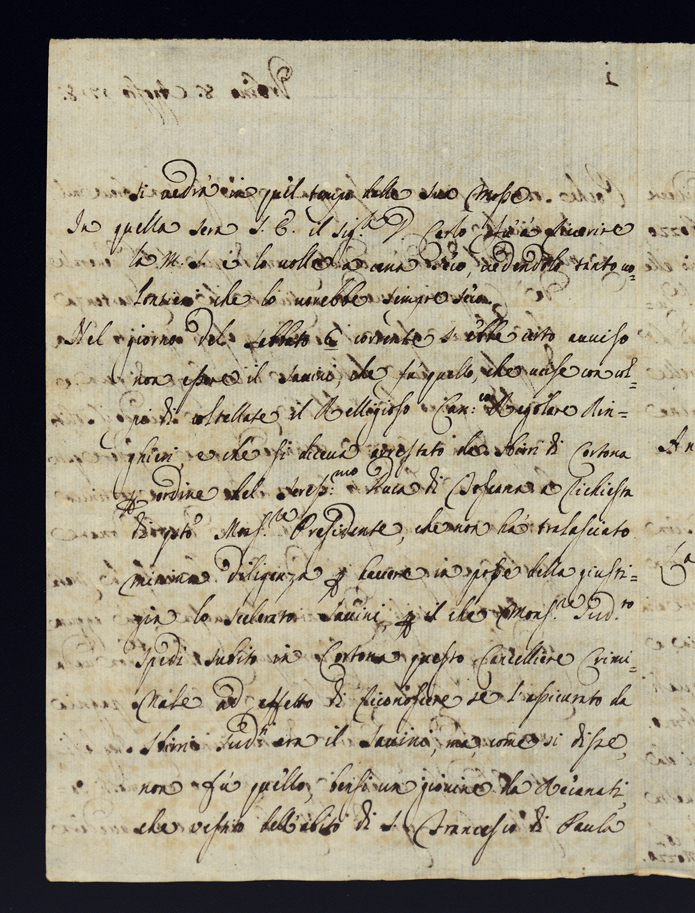 si vedrà in quel tempo delle sue mosse
In quella sera S. E. il Sig.r D. Carlo fù à riverire
la M. S. e lo volle a cena seco, vedendolo tanto vo=
lontieri che lo vorebbe sempre seco.
Nel giorno del sabbato 6 corrente s'ebbe certo avviso
non essere il Savini, che fù quello, che uccise con col=
pi di coltellate il Relligioso Can:co Regolare Rin=
ghieri, e che si diceva arrestato da sbirri di Cortona
p ordine del Seress:mo Duca di Toscana a richiesta
di q.sto Mons.re Presidente, che non hà tralasciato
minima diligenza p havere in potere della giusti=
zia lo scelerato Savini, p il che Mons.re Sud.to
spedì subito in Cortona questo Cancelliere Crimi=
nale ad effetto di riconoscere se l'assicurato da
sbirri Sud.i era il Savini, ma, come si disse,
non fù quello, bensì un giovine da Recanati,
che vestito dell'abito di S. Francesco di Paula